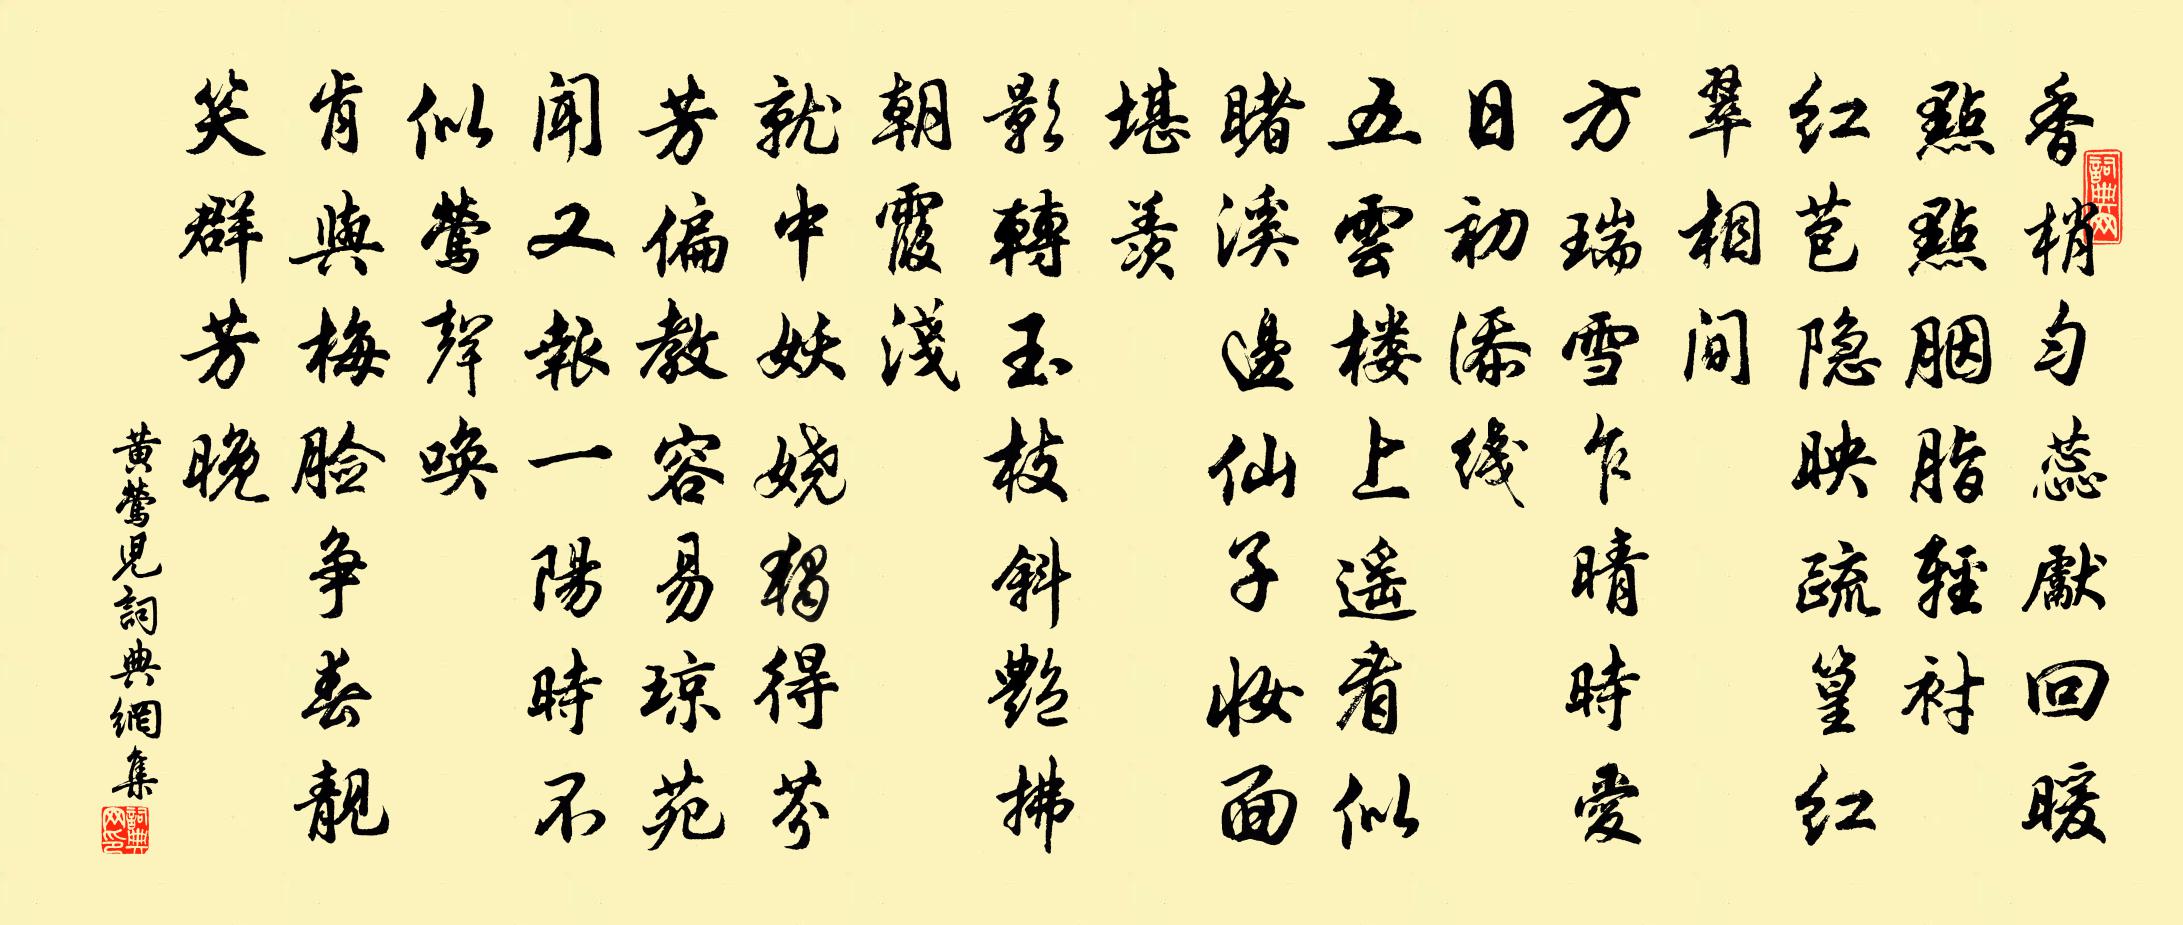 香梢匀蕊獻回暖
點點胭脂輕衬
红苞隐映疏篁红
翠相间
方瑞雪乍晴時愛
日初添綫
五雲楼上遥看似
睹溪邊仙子妝面
堪羨
影轉玉枝斜艷拂
朝霞淺
就中妖娆獨得芬
芳偏教容易琼苑
闻又報一陽時不
似鶯聲唤
肯與梅脸争春靚
笑群芳晚
黄鶯兒詞典網集
詞典网
詞典网印